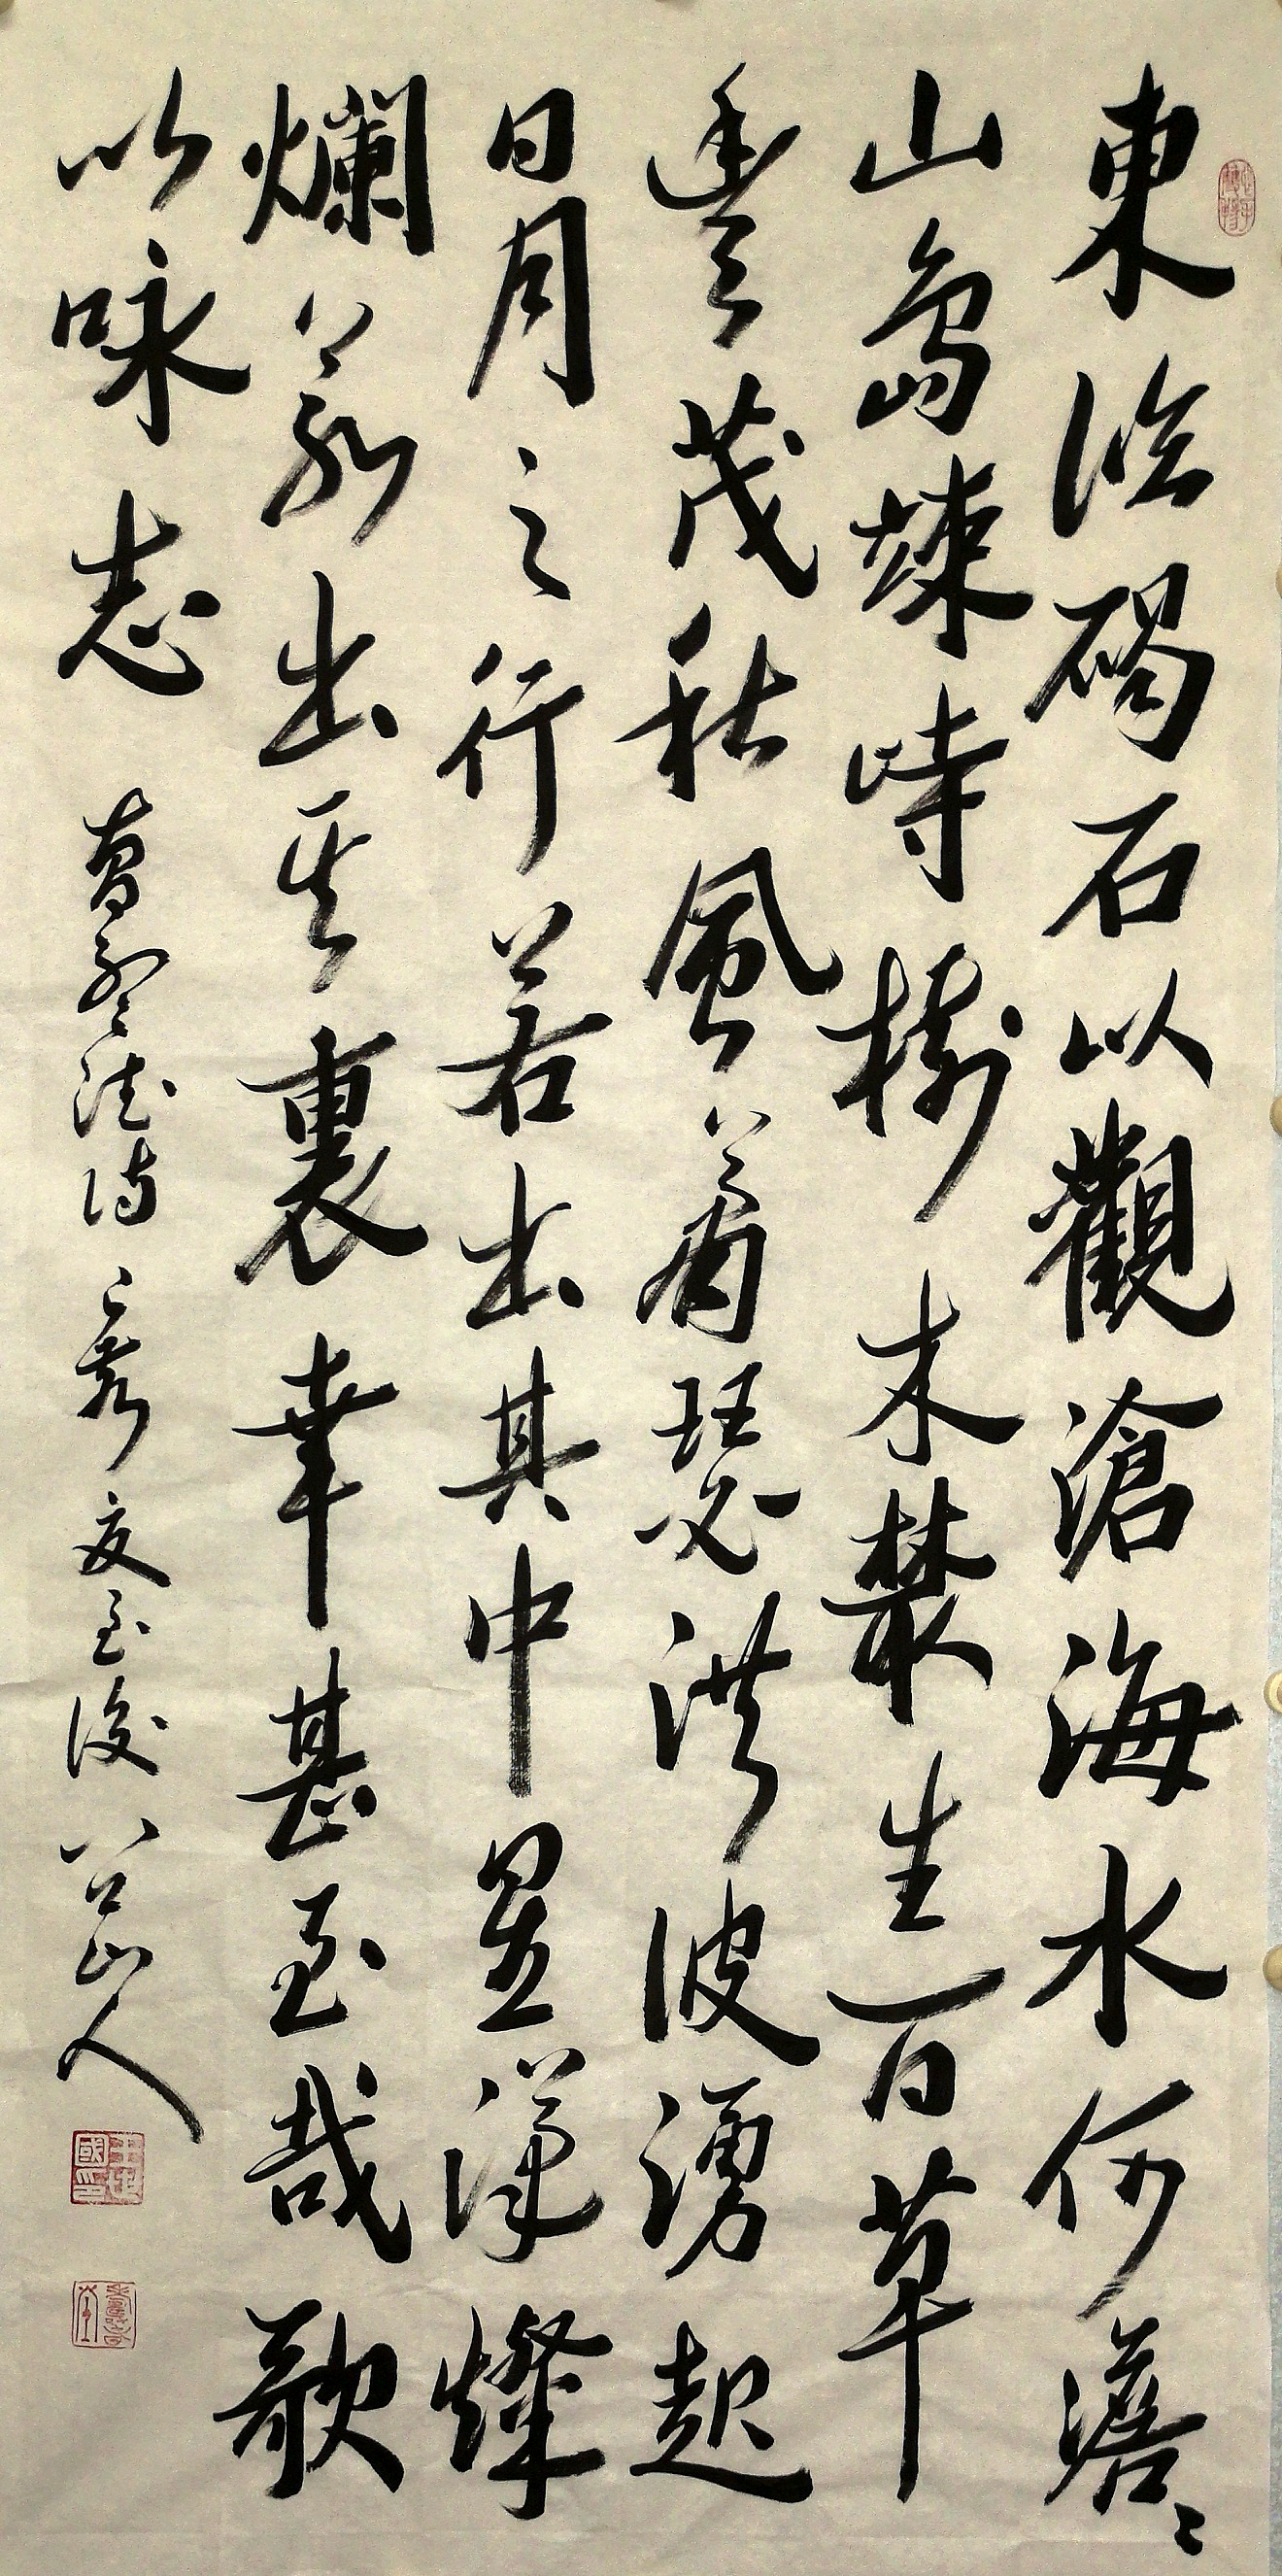 東臨碣石以觀滄海水何澹〻
山島竦峙樹木叢生百草
豐茂秋風蕭瑟洪波湧起
日月之行若出其中星漢燦
爛若出其裏幸甚至哉歌
以咏志 曹孟德詩 夏至後 山人